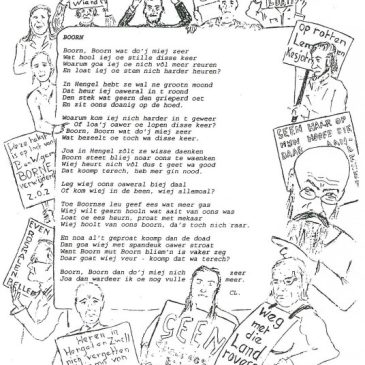 BOORN
Boorn, Boorn wat do'j miej zeer
Wat hool iej oe stille disse keer
Woarum goa iej oe nich völ meer reuren
En loat iej oe stem nich harder heuren?
In Hengel hebt ze wal ne grootn moond
Dat heur iej oaweral in t roond
Den stek wat geern den grieperd oet
En zit oons doanig op de hoed.
Woarum kom iej nich harder in t geweer
Of loa'j oawer oe lopen disse keer?
Boorn, Boorn wat do'j miej zeer
Wat bezeelt oe toch wa disse keer?
Joa in Hengel zölt ze wisse daenken
Boorn steet bliej noar oons te waenken
Wiej heurt nich völ dus t geet wa good
Dat koomp terech, heb mer gin nood.
Leg wiej oons oaweral biej daal
Of kom wiej in de been, wiej allemoal?
Toe Boornse leu geef ees wat meer gas
Wiej wilt geern hooln wat aait van oons was
Loat oe ees heurn, proat met mekaar
Wiej hoolt van oons boorn, da's toch nich raar.
En noa al't geproat komp dan de doad
Dan goa wiej met spandeuk oawer stroat
Want Boorn mut Boorn bliem'n is vaker zeg
Doar goat wiej veur - komp dat wa terech?
Boorn, Boorn dan do'j miej nich zeer
Joa dan wardeer ik oe nog vulle meer.
CL.
op rotten
GEEN HAAR OP
MIJN HOOFD DIE
BORNE
2.0.2
EVEN
BELLEN
Heren in
Hengelo en Zwoll
nich vergetten
GEEN
Weg
met
die
Land
rovers